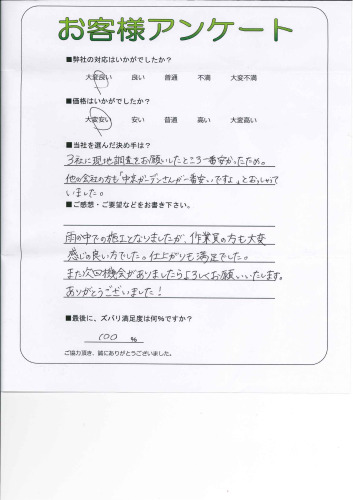 お客様アンケート
■弊社の対応はいかがでしたか？
大変良い 良い 普通 不満 大変不満
■価格はいかがでしたか？
大変安い 安い 普通 高い 大変高い
■当社を選んだ決め手は？
3社に現地調査をお願いしたところ一番安かったため。
他の会社の方も「中京ガーデンさんが一番安いですよ」とおっしゃって
いました。
■ご感想・ご要望などをお書き下さい。
雨の中での施工となりましたが、作業員の方も大変
感じの良い方でした。仕上がりも満足でした。
また次回機会がありましたらよろしくお願いいたします。
ありがとうございました！
■最後に、ズバリ満足度は何％ですか？
100 %
ご協力頂き、誠にありがとうございました。